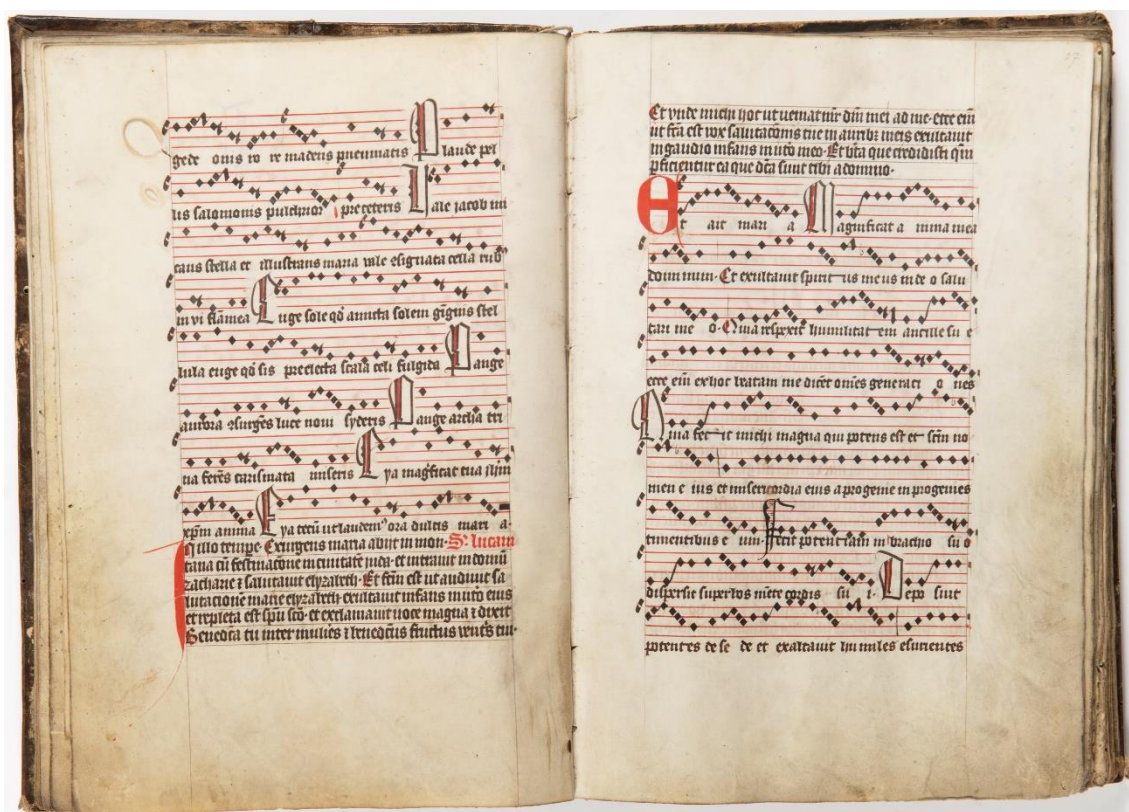 gede onis ro re madens pneumatis Plaude pel
lis salomonis pulchrior preceteris Vale jacob mi
cans stella et illustrans maria vale resignata cella rub
in vi flamea Euge sole qd amicta solem gignis stel
lula euge qd sis preelecta scala celi fulgida Pange
aurora resurges luce novi syderis Pange archa tri
na feres carismata miseris Eya magnificat tua
xpm anima Eya tecu ora dulcis mari a
illo tempe Exurgens maria abiit in mon S lucam
tana cu festinacione in civitate juda et intravit in domu
zacharie et salutavit elyzabeth Et fcm est ut audivit sa
lutacione marie elyzabeth exultavit infans in uto eius
et repleta est spu sco et exclamavit voce magna et dixit
Benedca tu inter mulies et benedcus fructus ventis tui
27
Et unde michi hoc ut veniat mr dni mei ad me ecce eni
ut fca est vox salutaconis tue in aurib meis exultavit
in gaudio infans in uto meo Et bta que credidisti qm
pficientur ea que dca sunt tibi a domino
Et ait mari a Magnificat a nima mea
dominum Et exultavit spirit us meus in de o salu
tari me o Quia respexit humilitat em ancille su e
ecce eni exhoc beatam me dicet omes generaci o nes
Quia fec it michi magna qui potens est et scm no
men e ius et misericordia eius a progenie in progenies
timentibus e um Fecit potentiam in brachio su o
dispersit superbos mete cordis su i Depo suit
potentes de se de et exaltavit hu miles esurientes